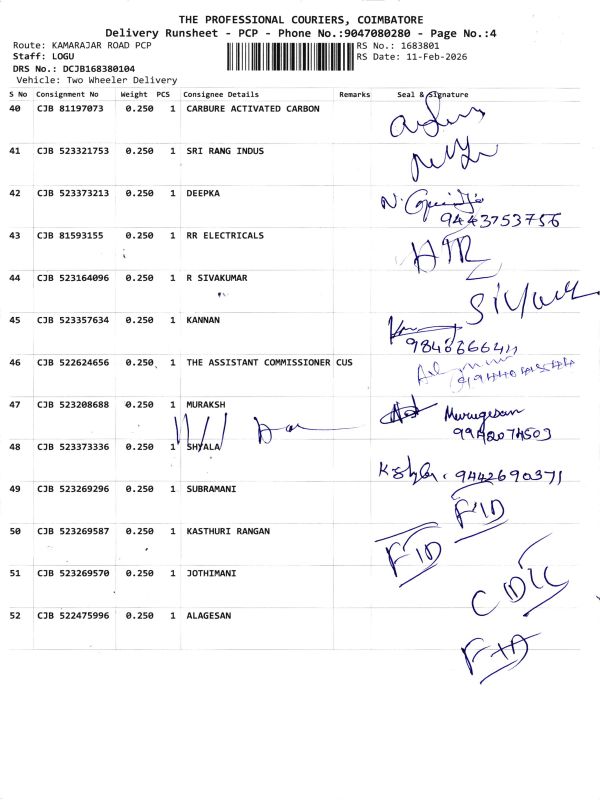 THE PROFESSIONAL COURIERS, COIMBATORE
Delivery Runsheet - PCP - Phone No.:9047080280 - Page No.:4
Route: KAMARAJAR ROAD PCP RS No.: 1683801
Staff: LOGU RS Date: 11-Feb-2026
DRS No.: DCJB168380104
Vehicle: Two Wheeler Delivery
S No Consignment No Weight PCS Consignee Details Remarks Seal & Signature
40 CJB 81197073 0.250 1 CARBURE ACTIVATED CARBON
41 CJB 523321753 0.250 1 SRI RANG INDUS
42 CJB 523373213 0.250 1 DEEPKA
9443753756
43 CJB 81593155 0.250 1 RR ELECTRICALS
44 CJB 523164096 0.250 1 R SIVAKUMAR
45 CJB 523357634 0.250 1 KANNAN
46 CJB 522624656 0.250 1 THE ASSISTANT COMMISSIONER CUS
47 CJB 523208688 0.250 1 MURAKSH Murugesan
48 CJB 523373336 0.250 1 SHYALA
9442690371
49 CJB 523269296 0.250 1 SUBRAMANI
FID
50 CJB 523269587 0.250 1 KASTHURI RANGAN
FID
51 CJB 523269570 0.250 1 JOTHIMANI
52 CJB 522475996 0.250 1 ALAGESAN